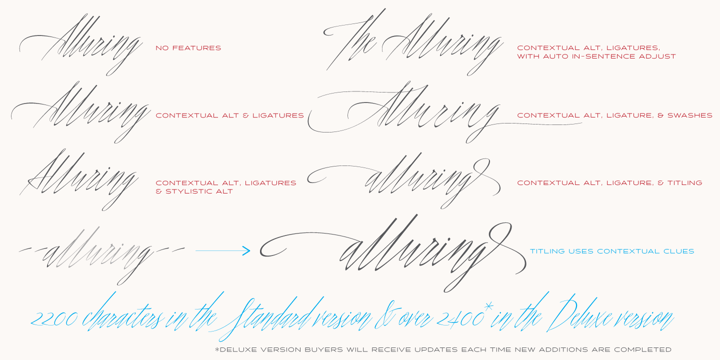 Alluring NO FEATURES
The Alluring CONTEXTUAL ALT, LIGATURES,
WITH AUTO IN-SENTENCE ADJUST
Alluring CONTEXTUAL ALT & LIGATURES
Alluring CONTEXTUAL ALT, LIGATURE, & SWASHES
Alluring CONTEXTUAL ALT, LIGATURES
& STYLISTIC ALT
alluring CONTEXTUAL ALT, LIGATURE, & TITLING
--alluring--
alluring TITLING USES CONTEXTUAL CLUES
2200 characters in the Standard version & over 2400* in the Deluxe version
*DELUXE VERSION BUYERS WILL RECEIVE UPDATES EACH TIME NEW ADDITIONS ARE COMPLETED